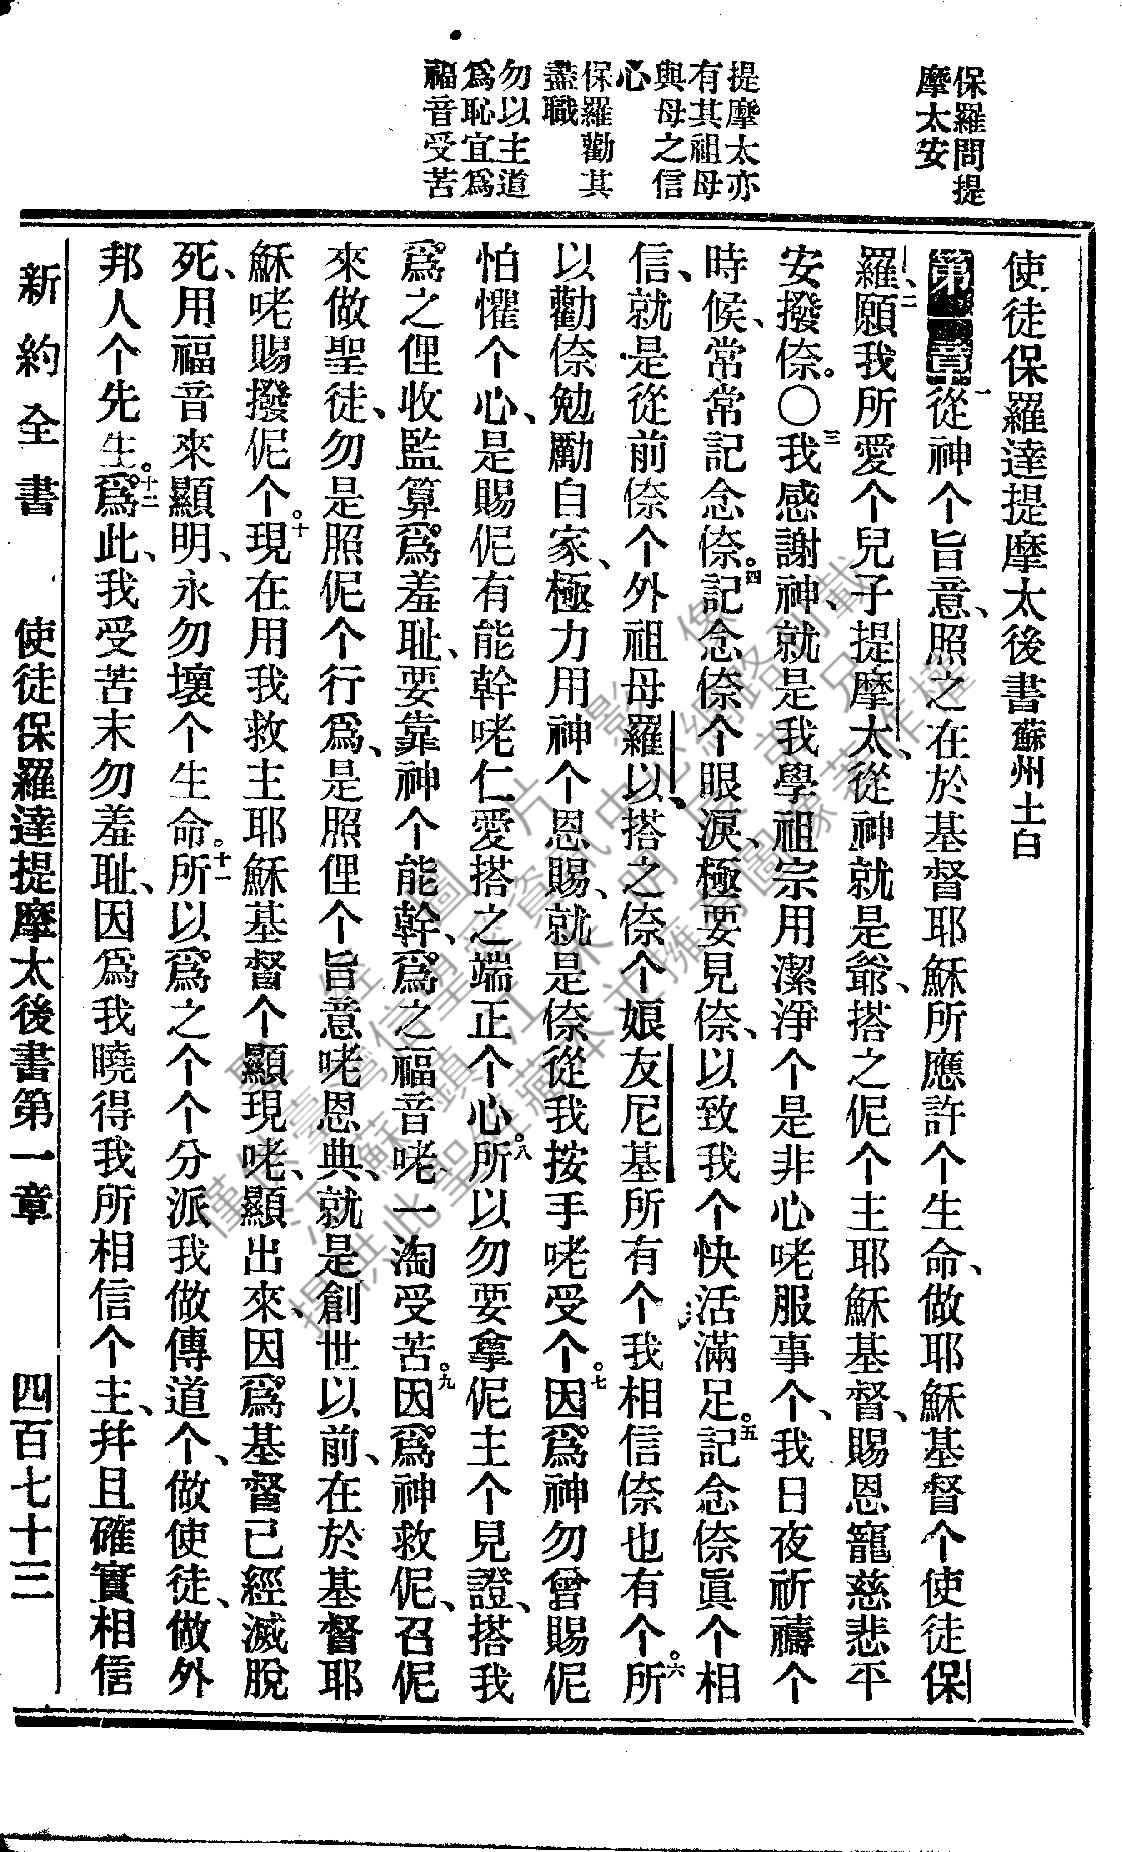 保羅問提
摩太安
提摩太亦
有其祖母
與母之信
心
保羅勸其
盡職
勿以主道
爲恥宜爲
福音受苦
使徒保羅達提摩太後書蘇州土白
第一章一從神个旨意、照之在於基督耶穌所應許个生命、做耶穌基督个使徒保
羅、二願我所愛个兒子提摩太、從神就是爺、搭之伲个主耶穌基督、賜恩寵慈悲平
安撥倷。〇三我感謝神、就是我學祖宗用潔淨个是非心咾服事个、我日夜祈禱个
時候、常常記念倷。四記念倷个眼淚、極要見倷、以致我个快活滿足。五記念倷眞个相
信、就是從前倷个外祖母羅以、搭之倷个娘友尼基所有个、我相信倷也有个。六所
以勸倷勉勵自家、極力用神个恩賜、就是倷從我按手咾受个。七因爲神勿曾賜伲
怕懼个心、是賜伲有能幹咾仁愛搭之端正个心。八所以勿要拿伲主个見證、搭我
爲之俚收監算爲羞耻、要靠神个能幹、爲之福音咾一淘受苦。九因爲神救伲、召伲
來做聖徒、勿是照伲个行爲、是照俚个旨意咾恩典、就是創世以前、在於基督耶
穌咾賜撥伲个。十現在用我救主耶穌基督个顯現咾、顯出來、因爲基督已經滅脫
死、用福音來顯明、永勿壞个生命。十一所以爲之个个分派我做傳道个、做使徒、做外
邦人个先生。十二爲此、我受苦末勿羞耻、因爲我曉得我所相信个主、幷且確實相信
新約全書 使徒保羅達提摩太後書第一章 四百七十三